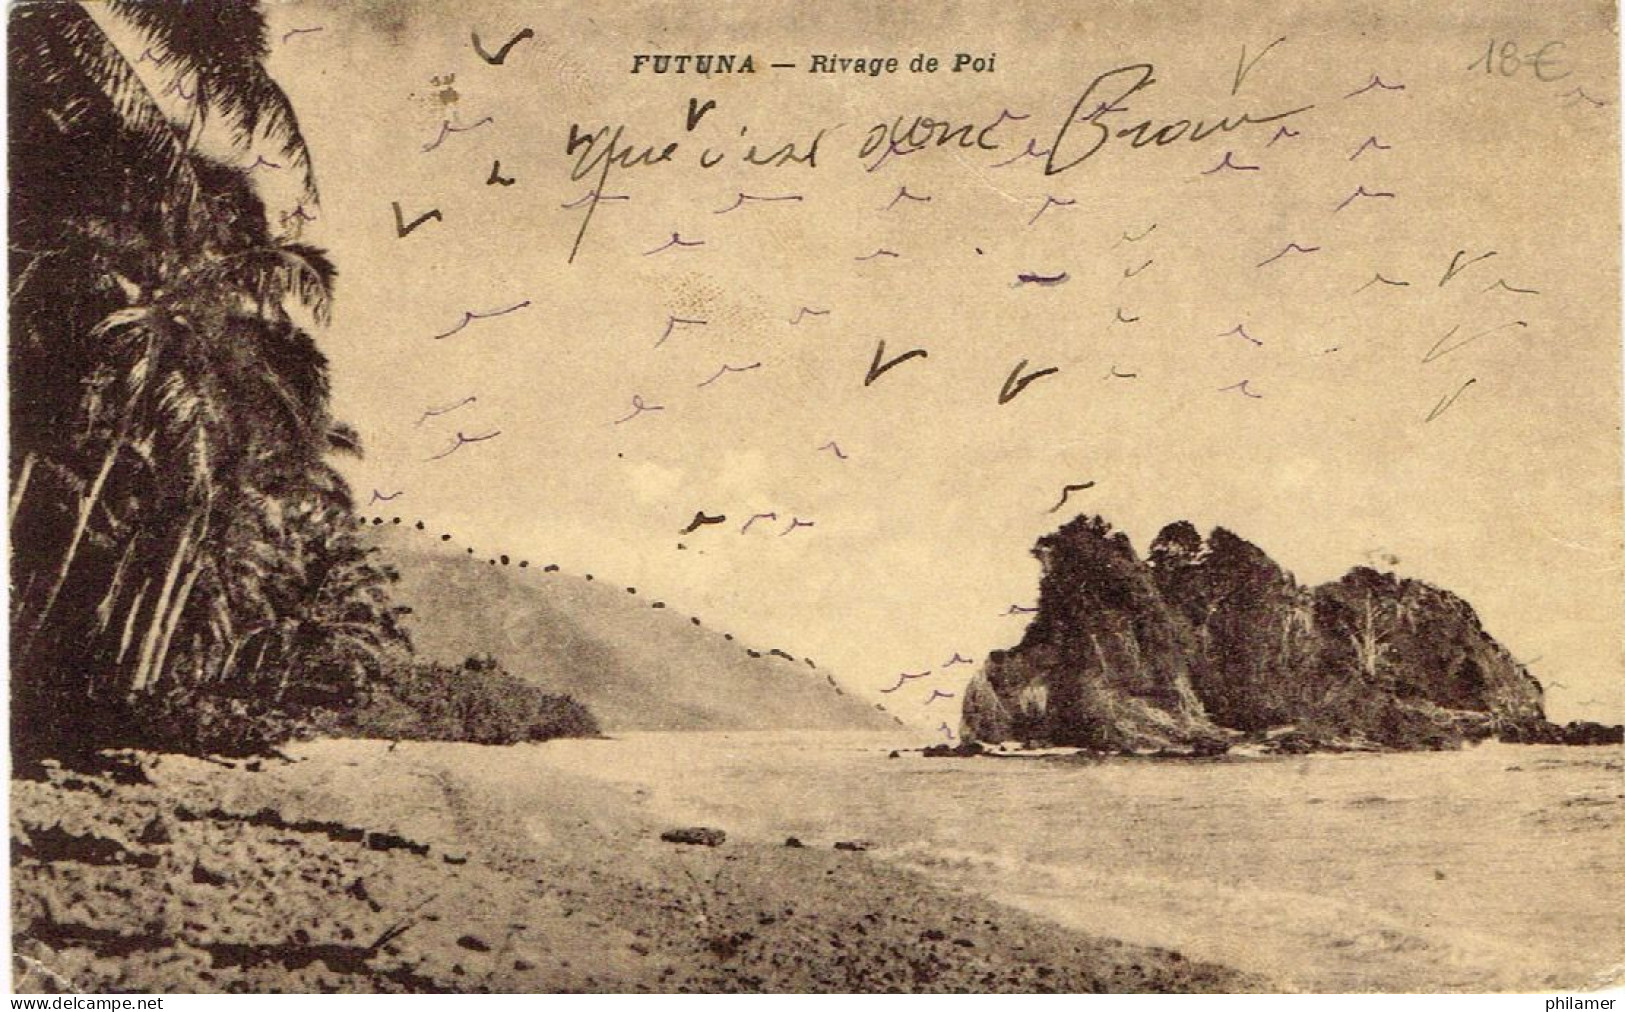 FUTUNA — Rivage de Poi
18€
Que c'est donc Beau
www.delcampe.net
philamer